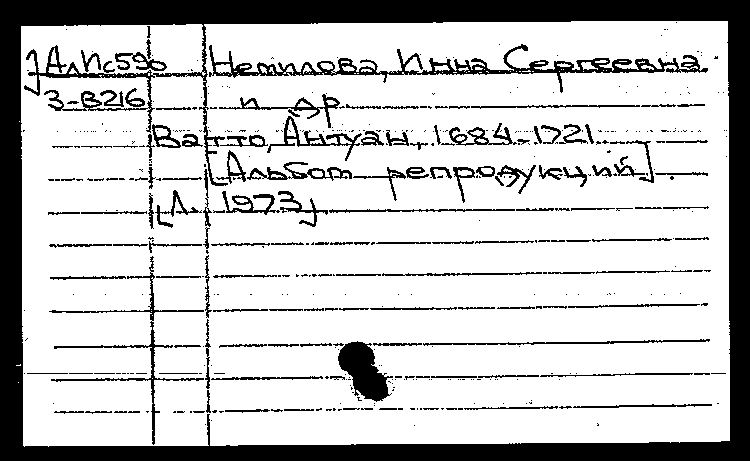 АлИс590 Немилова, Инна Сергеевна
З-В216 и др.
Ватто, Антуан, 1684-1721.
[Альбом репродукций].
[Л., 1973]